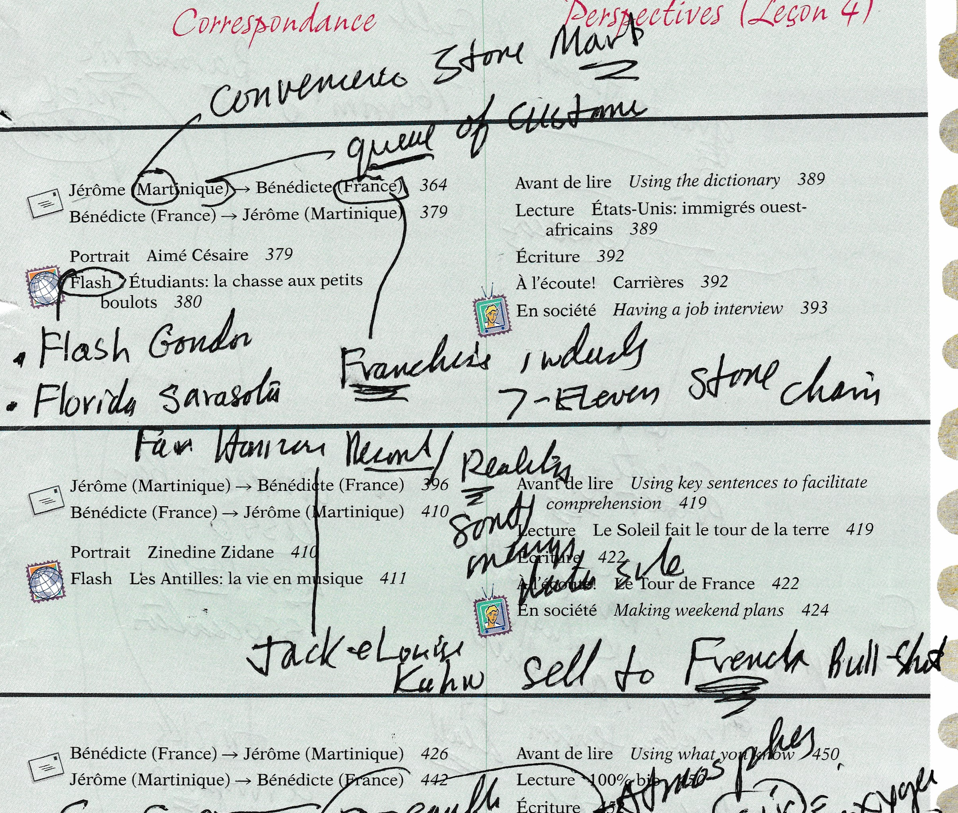 Correspondance
Perspectives (Leçon 4)
Store Mart
queue of
Jérôme (Martinique) → Bénédicte (France) 364
Bénédicte (France) → Jérôme (Martinique) 379
Portrait Aimé Césaire 379
Flash Étudiants: la chasse aux petits
boulots 380
Avant de lire Using the dictionary 389
Lecture États-Unis: immigrés ouest-
africains 389
Écriture 392
À l'écoute! Carrières 392
En société Having a job interview 393
• Flash Gordon
• Florida Sarasota
7-Eleven Store chain
Jérôme (Martinique) → Bénédicte (France) 396
Bénédicte (France) → Jérôme (Martinique) 410
Portrait Zinedine Zidane 410
Flash Les Antilles: la vie en musique 411
Reality
Avant de lire Using key sentences to facilitate
comprehension 419
Lecture Le Soleil fait le tour de la terre 419
Écriture 422
À l'écoute! Le Tour de France 422
En société Making weekend plans 424
Jack + Louise
Kuhn
sell to French Bull-Shot
Bénédicte (France) → Jérôme (Martinique) 426
Jérôme (Martinique) → Bénédicte (France) 442
Avant de lire Using what you know 450
Lecture 100%
Écriture
Atmosphes